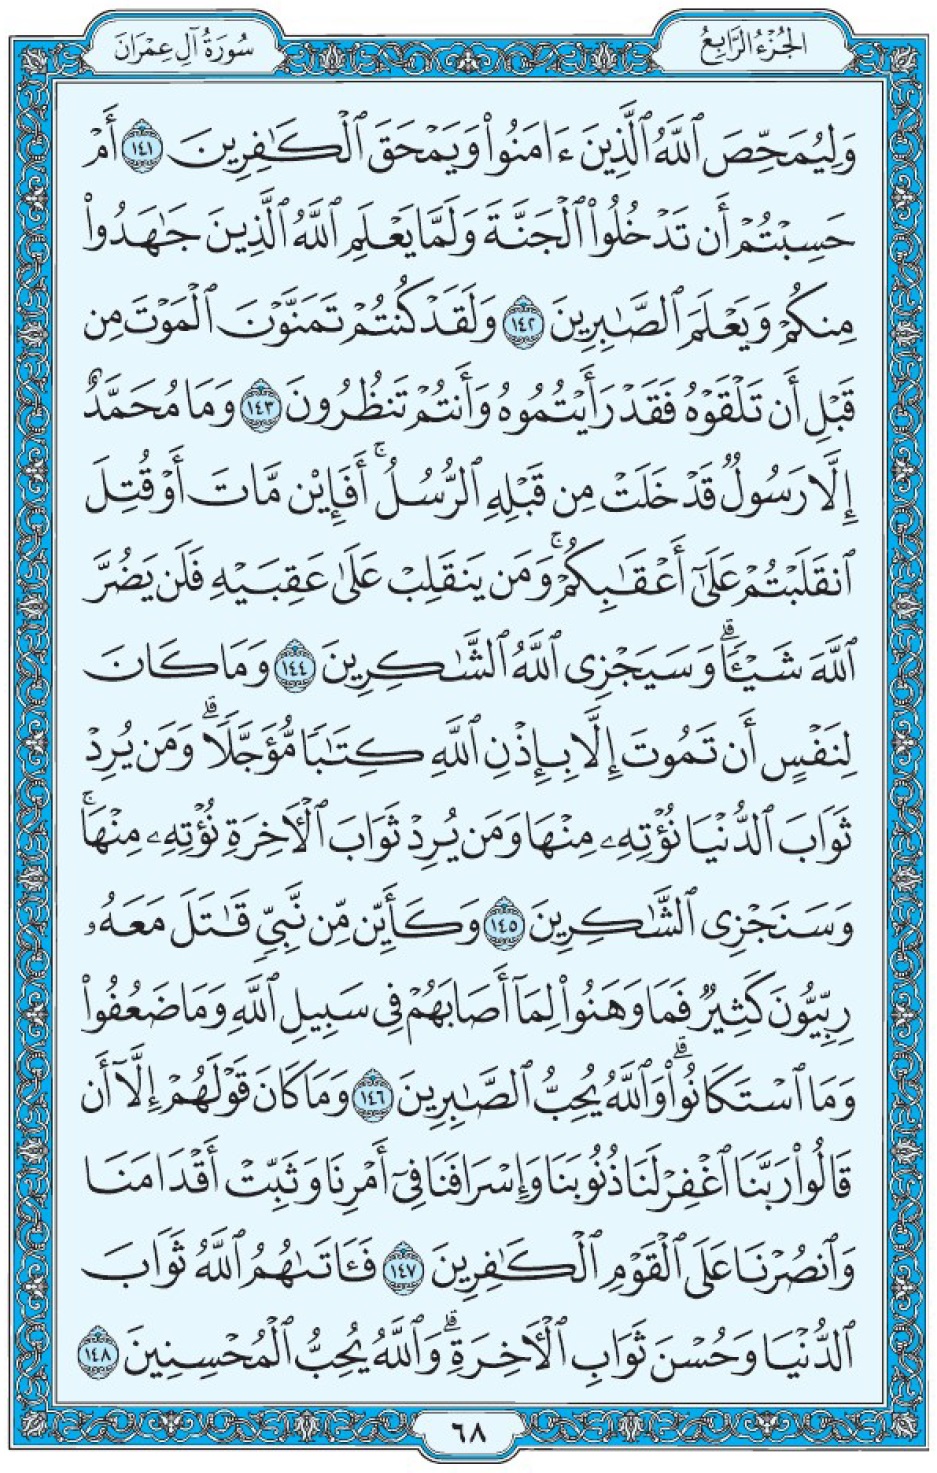 الجُزْءُ الرَّابِعُ
سُورَةُ آلِ عِمْرَانَ
وَلِيُمَحِّصَ ٱللَّهُ ٱلَّذِينَ ءَامَنُوا۟ وَيَمْحَقَ ٱلْكَٰفِرِينَ ١٤١ أَمْ
حَسِبْتُمْ أَن تَدْخُلُوا۟ ٱلْجَنَّةَ وَلَمَّا يَعْلَمِ ٱللَّهُ ٱلَّذِينَ جَٰهَدُوا۟
مِنكُمْ وَيَعْلَمَ ٱلصَّٰبِرِينَ ١٤٢ وَلَقَدْ كُنتُمْ تَمَنَّوْنَ ٱلْمَوْتَ مِن
قَبْلِ أَن تَلْقَوْهُ فَقَدْ رَأَيْتُمُوهُ وَأَنتُمْ تَنظُرُونَ ١٤٣ وَمَا مُحَمَّدٌ
إِلَّا رَسُولٌ قَدْ خَلَتْ مِن قَبْلِهِ ٱلرُّسُلُ ۚ أَفَإِي۟ن مَّاتَ أَوْ قُتِلَ
ٱنقَلَبْتُمْ عَلَىٰٓ أَعْقَٰبِكُمْ ۚ وَمَن يَنقَلِبْ عَلَىٰ عَقِبَيْهِ فَلَن يَضُرَّ
ٱللَّهَ شَيْـًٔا ۗ وَسَيَجْزِى ٱللَّهُ ٱلشَّٰكِرِينَ ١٤٤ وَمَا كَانَ
لِنَفْسٍ أَن تَمُوتَ إِلَّا بِإِذْنِ ٱللَّهِ كِتَٰبًا مُّؤَجَّلًا ۗ وَمَن يُرِدْ
ثَوَابَ ٱلدُّنْيَا نُؤْتِهِۦ مِنْهَا وَمَن يُرِدْ ثَوَابَ ٱلْأَخِرَةِ نُؤْتِهِۦ مِنْهَا ۚ
وَسَنَجْزِى ٱلشَّٰكِرِينَ ١٤٥ وَكَأَيِّن مِّن نَّبِىٍّ قَٰتَلَ مَعَهُۥ
رِبِّيُّونَ كَثِيرٌ فَمَا وَهَنُوا۟ لِمَآ أَصَابَهُمْ فِى سَبِيلِ ٱللَّهِ وَمَا ضَعُفُوا۟
وَمَا ٱسْتَكَانُوا۟ ۗ وَٱللَّهُ يُحِبُّ ٱلصَّٰبِرِينَ ١٤٦ وَمَا كَانَ قَوْلَهُمْ إِلَّآ أَن
قَالُوا۟ رَبَّنَا ٱغْفِرْ لَنَا ذُنُوبَنَا وَإِسْرَافَنَا فِىٓ أَمْرِنَا وَثَبِّتْ أَقْدَامَنَا
وَٱنصُرْنَا عَلَى ٱلْقَوْمِ ٱلْكَٰفِرِينَ ١٤٧ فَـَٔاتَىٰهُمُ ٱللَّهُ ثَوَابَ
ٱلدُّنْيَا وَحُسْنَ ثَوَابِ ٱلْأَخِرَةِ ۗ وَٱللَّهُ يُحِبُّ ٱلْمُحْسِنِينَ ١٤٨
٦٨